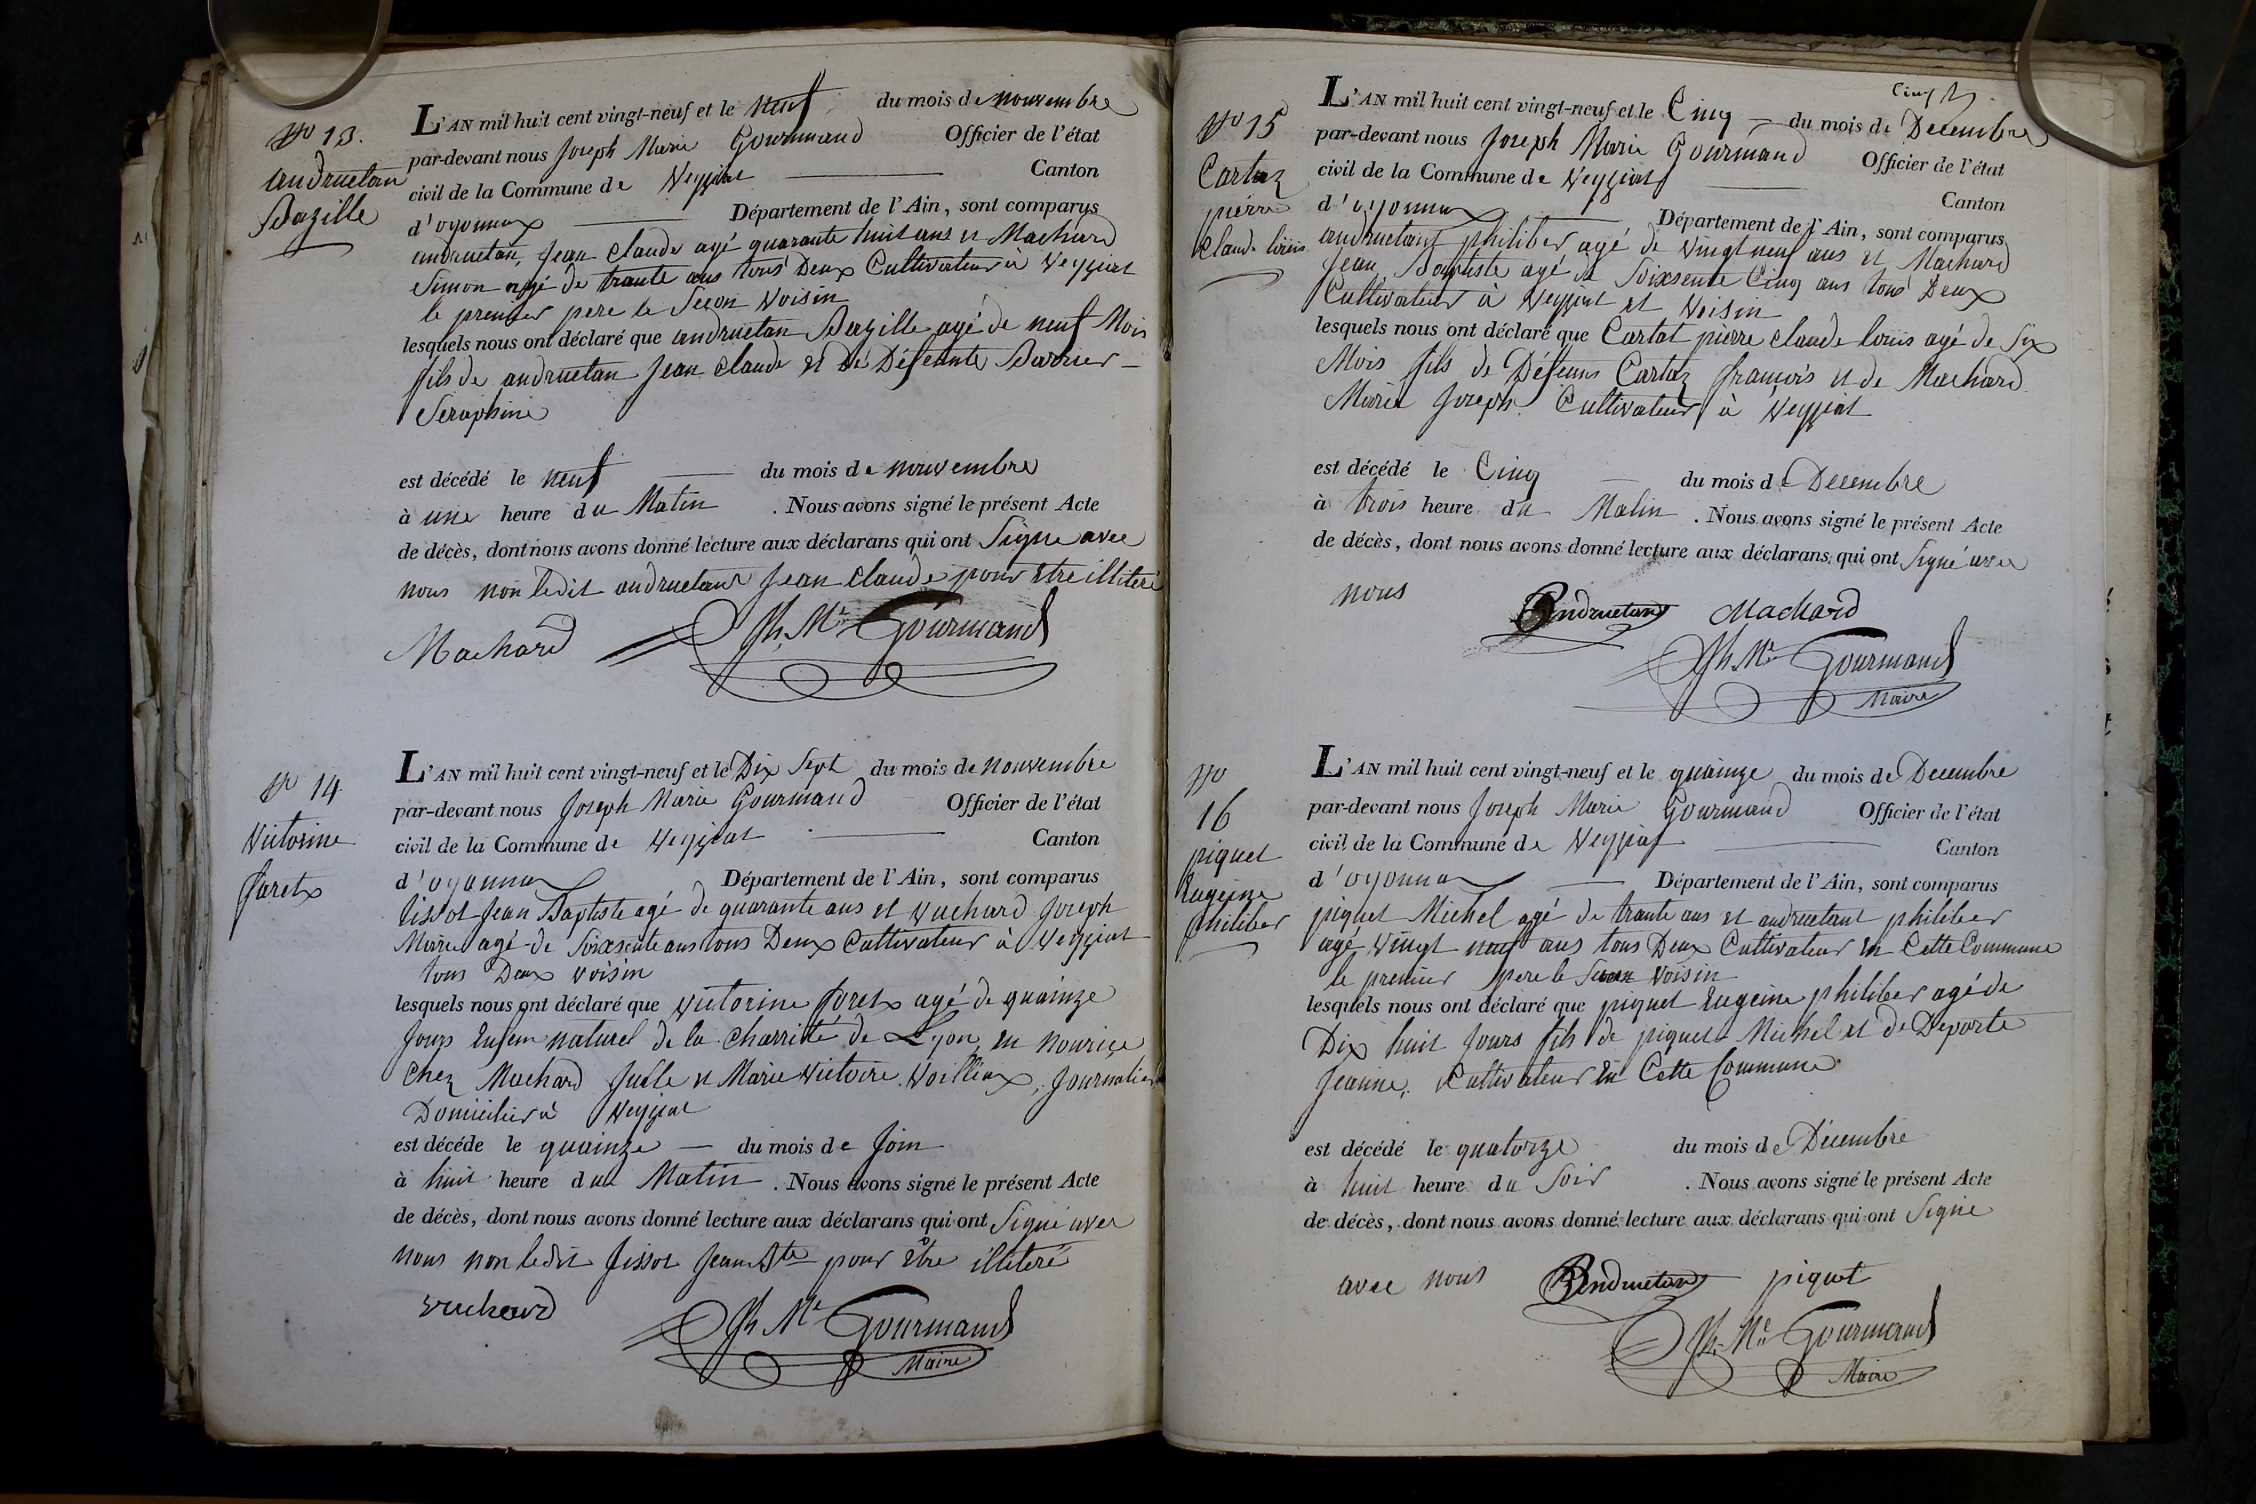 No 13.
andruetan
Bazille
L'AN mil huit cent vingt-neuf et le neuf du mois de nouvembre
par-devant nous Joseph Marie Gourmand Officier de l'état
civil de la Commune de Veyziat Canton
d'oyonnax Département de l'Ain, sont comparus
andruetan, Jean Claude agé quarante huit ans et Machard
Simon agé de trante ans tous Deux Cultivateur a Veyziat
le premier pere le Secon Voisin
lesquels nous ont déclaré que andruetan Bazille agé de neuf Mois
fils de andruetan Jean Claude et de Défeunte Barrier
Seraphine
est décédé le neuf du mois de nouvembre
à une heure du Matin . Nous avons signé le présent Acte
de décès, dont nous avons donné lecture aux déclarans qui ont Signe avec
nous non ledit andruetant Jean Claude pour Etre illiteré
Machard Jh Me Gourmand
No 14
Victorine
foretx
L'AN mil huit cent vingt-neuf et le Dix Sept du mois de nouvembre
par-devant nous Joseph Marie Gourmand Officier de l'état
civil de la Commune de Veyziat Canton
d'oyonnax Département de l'Ain, sont comparus
tissot Jean Baptiste agé de quarante ans et Vuchard Joseph
Marie agé de Soixsente ans tous Deux Cultivateur à Veyziat
tous Deux voisin
lesquels nous ont déclaré que Victorine foretx agé de quainze
Jours Enfem naturel de la Charrité de Lyon, en nourice
Chez Machard Juste et Marie Victoire Voilliax, Journalier
Domicilier à Veyziat
est décéde le quainze du mois de Join
à huit heure du Matin . Nous avons signé le présent Acte
de décès, dont nous avons donné lecture aux déclarans qui ont Signé avec
nous non ledit tissot Jean Bte pour Être illiteré
vuchard Jh Me Gourmand
Maire
No 15
Cartaz
pierre
Claude louis
L'AN mil huit cent vingt-neuf et le Cinq du mois de Decembre
par-devant nous Joseph Marie Gourmand Officier de l'état
civil de la Commune de Veyziat Canton
d'oyonnax Département de l'Ain, sont comparus
andruetant philiber agé de vingt neuf ans et Machard
Jean Baptiste agé de Soixsente Cinq ans tous Deux
Cultivateur à Veyziat et Voisin
lesquels nous ont déclaré que Cartat pierre Claude louis agé de Six
Mois fils de Défeuns Cartaz francois et de Machard
Marie Joseph Cultivateur à Veyziat
est décédé le Cinq du mois de Decembre
à trois heure du Matin . Nous avons signé le présent Acte
de décès, dont nous avons donné lecture aux déclarans qui ont Signé avec
nous
Andruetant Machard
Jh Me Gourmand
Maire
No
16
piquet
Eugeine
philiber
L'AN mil huit cent vingt-neuf et le quainze du mois de Decembre
par-devant nous Joseph Marie Gourmand Officier de l'état
civil de la Commune de Veyziat Canton
d'oyonnax Département de l'Ain, sont comparus
piquet Michel agé de trante ans et andruetant philiber
agé Vingt neuf ans tous Deux Cultivateur En Cette Commune
le premier pere le Secon Voisin
lesquels nous ont déclaré que piquet Eugeine philiber agé de
Dix huit Jours fils de piquet Michel et de Deporte
Jeanne, Cultivateur En Cette Commune
est décédé le quatorze du mois de Décembre
à huit heure du Soir . Nous avons signé le présent Acte
de décès, dont nous avons donné lecture aux déclarans qui ont Signé
avec nous Andruetant piquet
Jh Me Gourmand
Maire